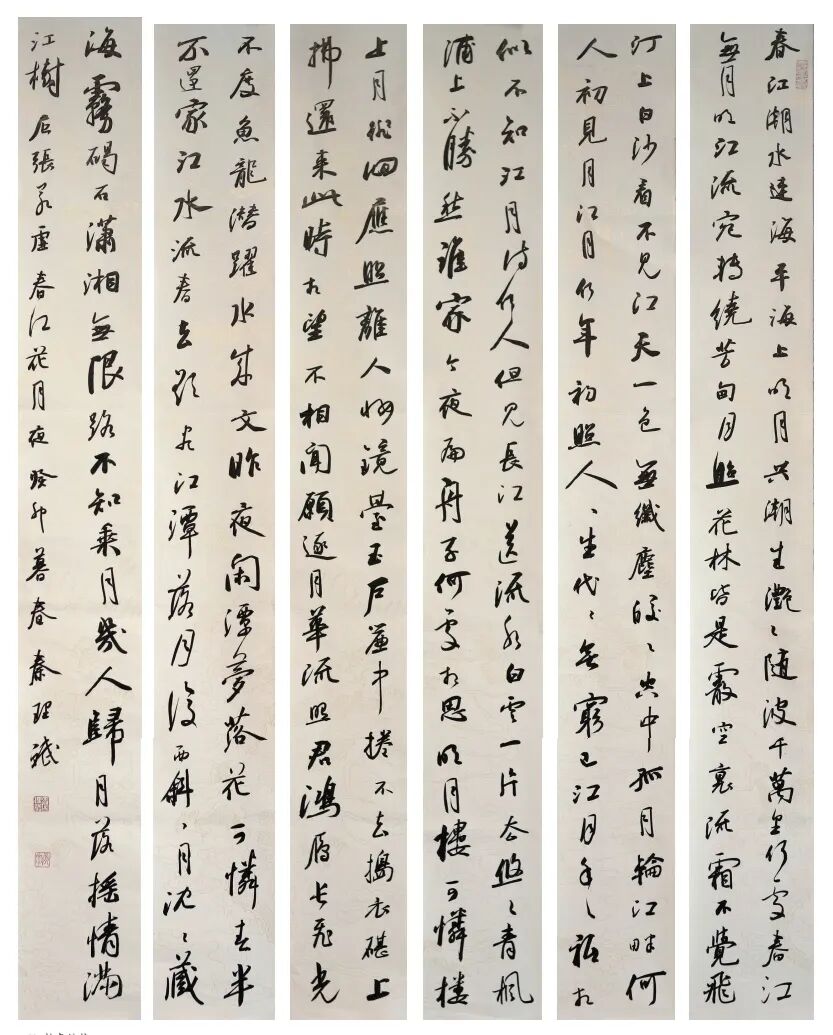 春江潮水連海平海上明月共潮生灩々隨波千萬里何處春江
無月明江流宛轉繞芳甸月照花林皆是霰空裏流霜不覺飛
汀上白沙看不見江天一色無纖塵皎々空中孤月輪江畔何
人初見月江月何年初照人々生代々無窮已江月年々祗相
似不知江月待何人但見長江送流水白雲一片去悠々青楓
浦上不勝愁誰家今夜扁舟子何處相思明月樓可憐樓
上月徘徊應照離人妝鏡臺玉戶簾中捲不去搗衣碪上
拂還來此時相望不相聞願逐月華流照君鴻雁長飛光
不度魚龍潛躍水成文昨夜閑潭夢落花可憐春半
不還家江水流春去欲盡江潭落月復西斜々月沈々藏
海霧碣石瀟湘無限路不知乘月幾人歸月落搖情滿
江樹 右張若虛春江花月夜癸卯暮春秦理